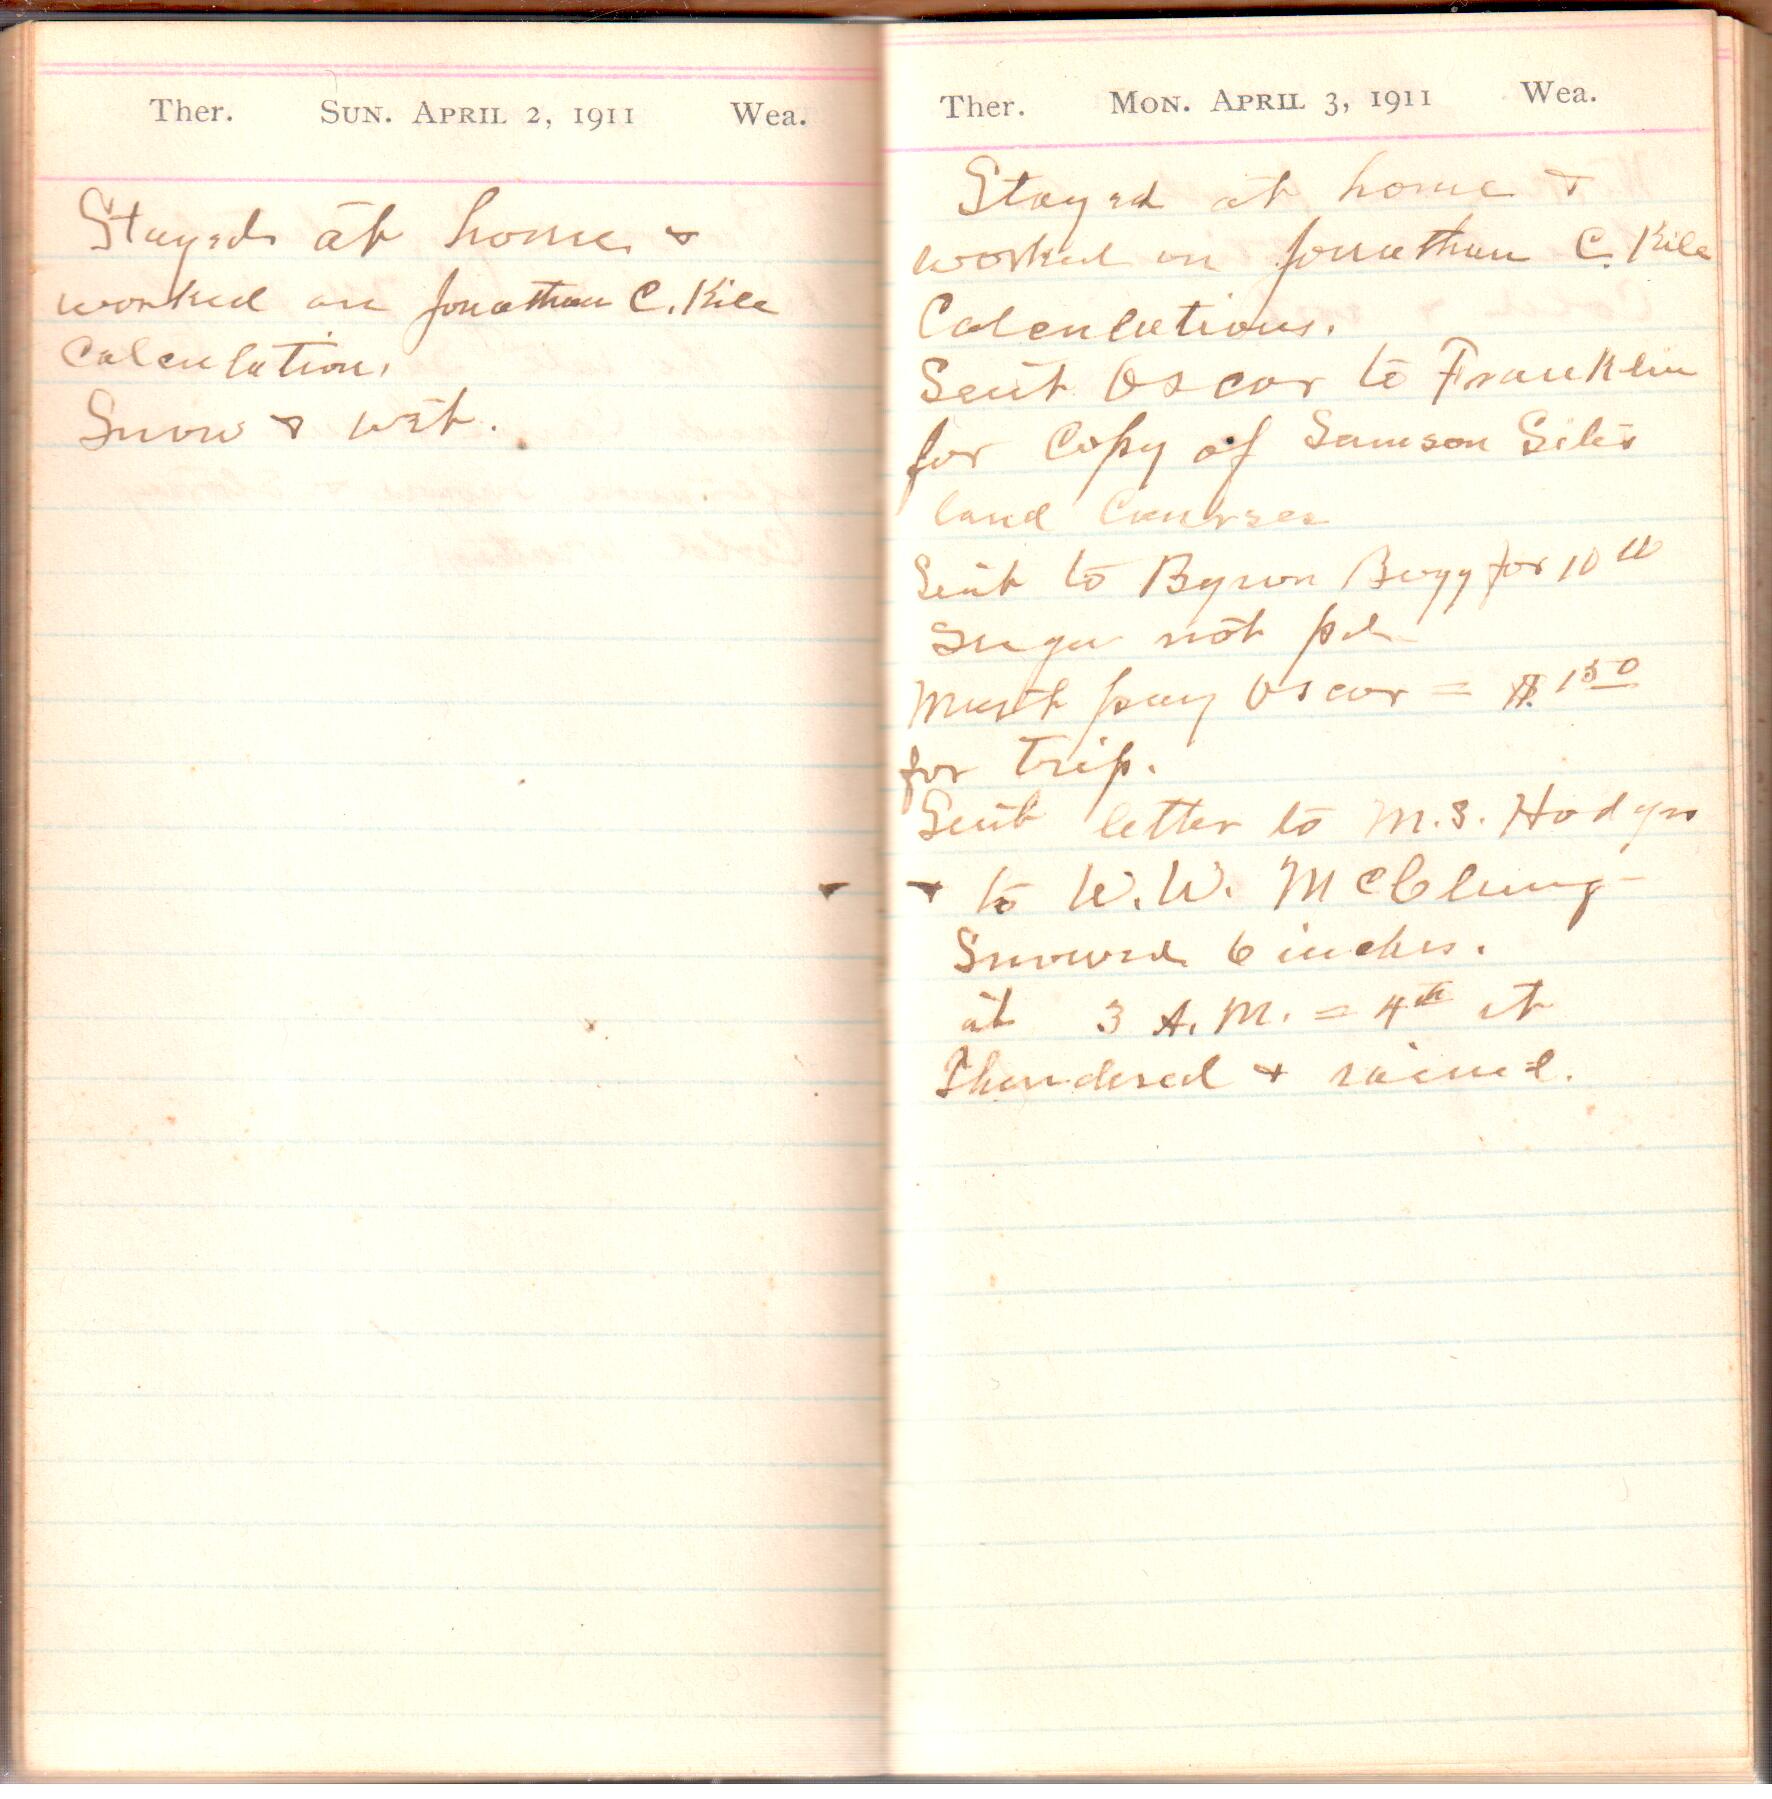 Ther. Sun. April 2, 1911 Wea.
Stayed at home &
worked on Jonathan C. Kile
Calculation.
Snow & wet.
Ther. Mon. April 3, 1911 Wea.
Stayed at home &
worked on Jonathan C. Kile
Calculations.
Sent Oscar to Franklin
for Copy of Samson
land Courses
Sent to Byron Bogg for 10 lb
Sugar not pd
Must pay Oscar = $1 50
for trip.
Sent letter to M.S. Hodges
& to W.W. McClung
Snowed 6 inches.
at 3 A.M. = 4th it
Thundered & rained.